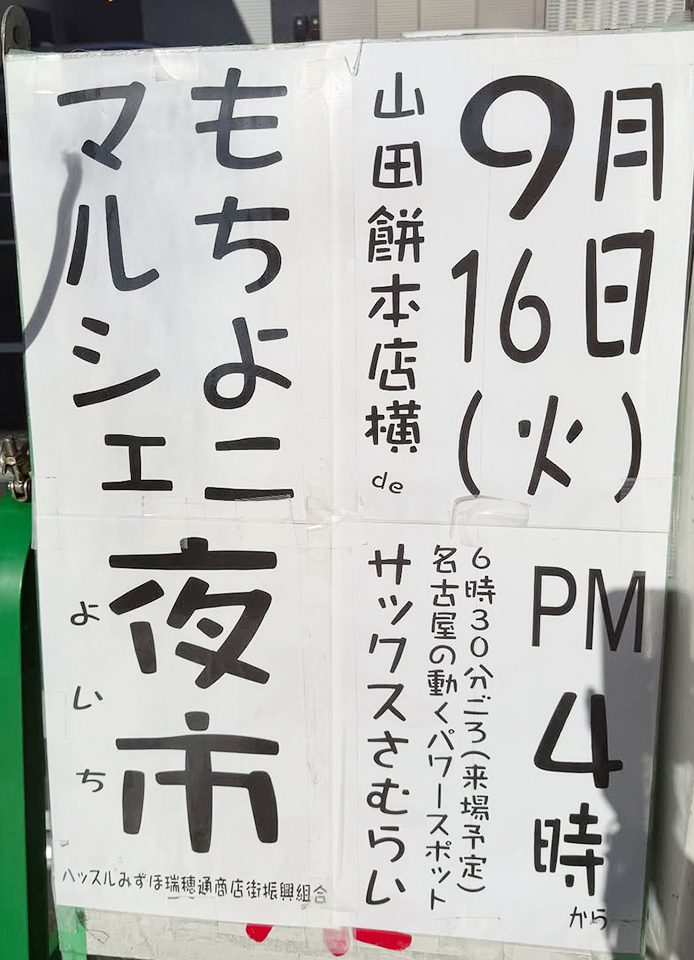 9月
16日
(火)
PM
4時
から
山田餅本店横
de
6時30分ごろ(来場予定)
名古屋の動くパワースポット
サックスさむらい
もちよこ
マルシェ
夜市
よいち
ハッスルみずほ瑞穂通商店街振興組合